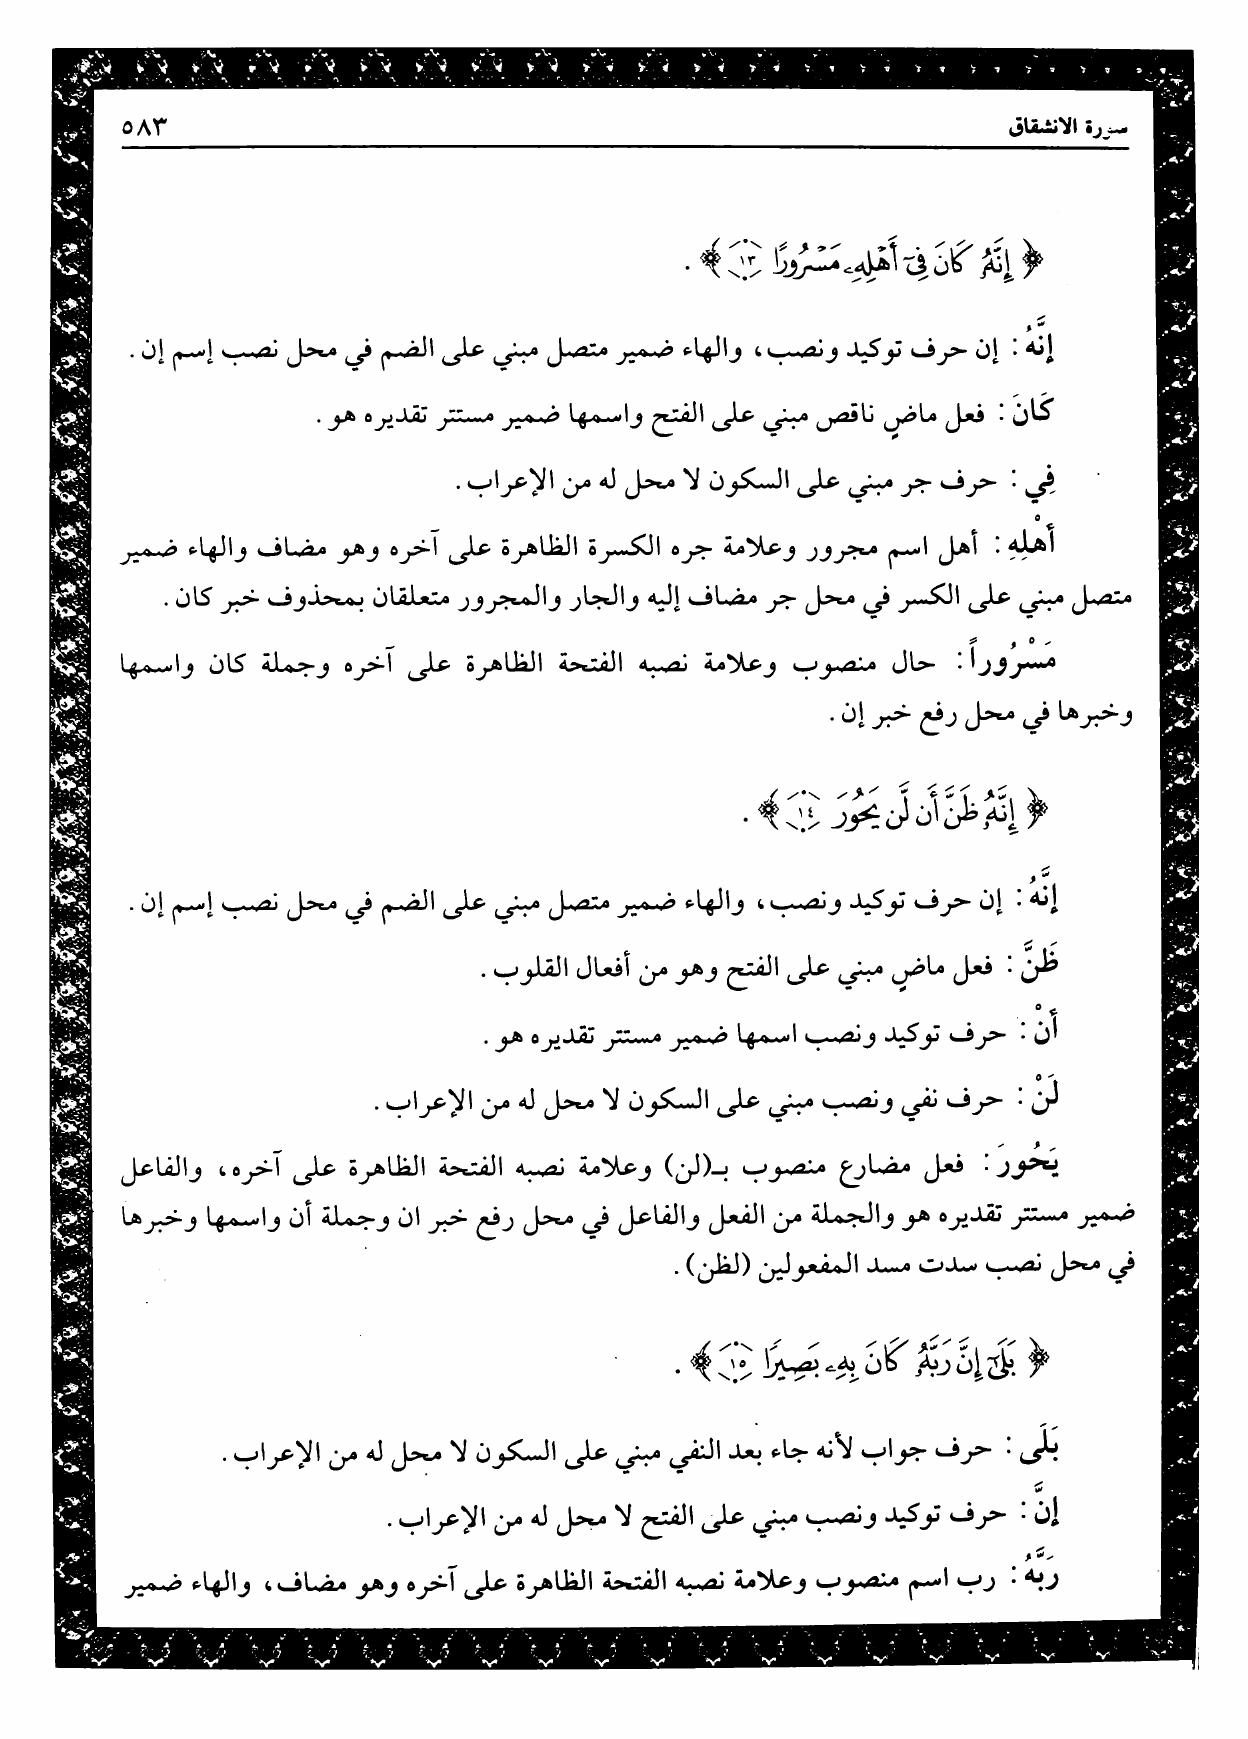 سورة الانشقاق ٥٨٣
﴿ إِنَّهُ كَانَ فِي أَهْلِهِ مَسْرُورًا ١٣ ﴾ .
إِنَّهُ : إن حرف توكيد ونصب، والهاء ضمير متصل مبني على الضم في محل نصب إسم إن .
كَانَ : فعل ماضٍ ناقص مبني على الفتح واسمها ضمير مستتر تقديره هو .
فِي : حرف جر مبني على السكون لا محل له من الإعراب .
أَهْلِهِ : أهل اسم مجرور وعلامة جره الكسرة الظاهرة على آخره وهو مضاف والهاء ضمير
متصل مبني على الكسر في محل جر مضاف إليه والجار والمجرور متعلقان بمحذوف خبر كان .
مَسْرُوراً : حال منصوب وعلامة نصبه الفتحة الظاهرة على آخره وجملة كان واسمها
وخبرها في محل رفع خبر إن .
﴿ إِنَّهُ ظَنَّ أَن لَّن يَحُورَ ١٤ ﴾ .
إِنَّهُ : إن حرف توكيد ونصب، والهاء ضمير متصل مبني على الضم في محل نصب إسم إن .
ظَنَّ : فعل ماضٍ مبني على الفتح وهو من أفعال القلوب .
أَنْ : حرف توكيد ونصب اسمها ضمير مستتر تقديره هو .
لَنْ : حرف نفي ونصب مبني على السكون لا محل له من الإعراب .
يَحُورَ : فعل مضارع منصوب بـ(لن) وعلامة نصبه الفتحة الظاهرة على آخره، والفاعل
ضمير مستتر تقديره هو والجملة من الفعل والفاعل في محل رفع خبر ان وجملة أن واسمها وخبرها
في محل نصب سدت مسد المفعولين (لظن) .
﴿ بَلَى إِنَّ رَبَّهُ كَانَ بِهِ بَصِيرًا ١٥ ﴾ .
بَلَى : حرف جواب لأنه جاء بعد النفي مبني على السكون لا محل له من الإعراب .
إنَّ : حرف توكيد ونصب مبني على الفتح لا محل له من الإعراب .
رَبَّهُ : رب اسم منصوب وعلامة نصبه الفتحة الظاهرة على آخره وهو مضاف، والهاء ضمير